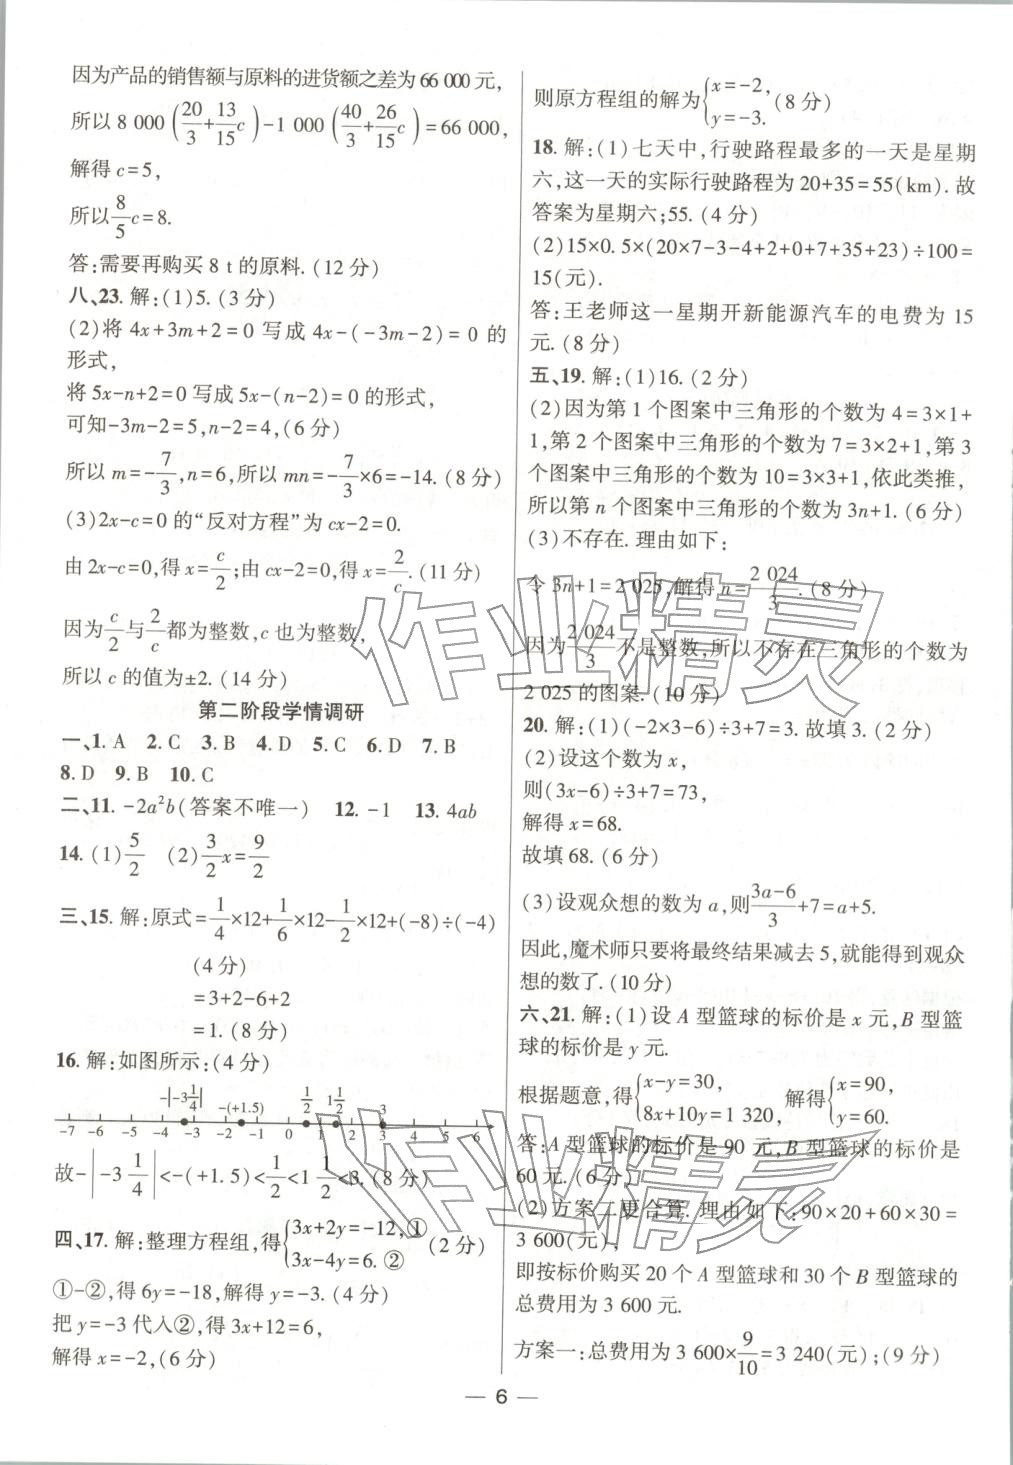 因为产品的销售额与原料的进货额之差为 66 000 元，
所以 8 000(20/3+13/15c)-1 000(40/3+26/15c)=66 000，
解得 c=5，
所以8/5c=8.
答：需要再购买 8 t 的原料.(12 分)
八、23. 解：(1)5.(3 分)
(2)将 4x+3m+2=0 写成 4x-(-3m-2)=0 的
形式，
将 5x-n+2=0 写成 5x-(n-2)=0 的形式，
可知-3m-2=5,n-2=4,(6 分)
所以 m=-7/3,n=6,所以 mn=-7/3×6=-14.(8 分)
(3)2x-c=0 的“反对方程”为 cx-2=0.
由 2x-c=0,得 x=c/2;由 cx-2=0,得 x=2/c.(11 分)
因为c/2与2/c都为整数,c 也为整数，
所以 c 的值为±2.(14 分)
第二阶段学情调研
一、1. A 2. C 3. B 4. D 5. C 6. D 7. B
8. D 9. B 10. C
二、11. -2a²b(答案不唯一) 12. -1 13. 4ab
14. (1)5/2 (2)3/2x=9/2
三、15. 解：原式=1/4×12+1/6×12-1/2×12+(-8)÷(-4)
(4 分)
=3+2-6+2
=1.(8 分)
16. 解：如图所示：(4 分)
-|-3 1/4| -(+1.5) 1/2 1 1/2 3
-7 -6 -5 -4 -3 -2 -1 0 1 2 3 4 5 6
故-|-3 1/4|<-(+1.5)<1/2<1 1/2<3.(8 分)
四、17. 解：整理方程组,得{3x+2y=-12,① 3x-4y=6.② (2 分)
①-②,得 6y=-18,解得 y=-3.(4 分)
把 y=-3 代入②,得 3x+12=6,
解得 x=-2,(6 分)
则原方程组的解为{x=-2, y=-3. (8 分)
18. 解：(1)七天中,行驶路程最多的一天是星期
六,这一天的实际行驶路程为 20+35=55(km). 故
答案为星期六;55.(4 分)
(2)15×0.5×(20×7-3-4+2+0+7+35+23)÷100=
15(元).
答:王老师这一星期开新能源汽车的电费为 15
元.(8 分)
五、19. 解：(1)16.(2 分)
(2)因为第 1 个图案中三角形的个数为 4=3×1+
1,第 2 个图案中三角形的个数为 7=3×2+1,第 3
个图案中三角形的个数为 10=3×3+1,依此类推,
所以第 n 个图案中三角形的个数为 3n+1.(6 分)
(3)不存在. 理由如下：
令 3n+1=2 025,解得 n=2 024/3.(8 分)
因为2 024/3不是整数,所以不存在三角形的个数为
2 025 的图案.(10 分)
20. 解：(1)(-2×3-6)÷3+7=3. 故填 3.(2 分)
(2)设这个数为 x,
则(3x-6)÷3+7=73,
解得 x=68.
故填 68.(6 分)
(3)设观众想的数为 a,则3a-6/3+7=a+5.
因此,魔术师只要将最终结果减去 5,就能得到观众
想的数了.(10 分)
六、21. 解：(1)设 A 型篮球的标价是 x 元,B 型篮
球的标价是 y 元.
根据题意,得{x-y=30, 8x+10y=1 320, 解得{x=90, y=60.
答:A 型篮球的标价是 90 元,B 型篮球的标价是
60 元.(6 分)
(2)方案二更合算. 理由如下：90×20+60×30=
3 600(元),
即按标价购买 20 个 A 型篮球和 30 个 B 型篮球的
总费用为 3 600 元.
方案一：总费用为 3 600×9/10=3 240(元);(9 分)
— 6 —
作业精灵
作业精灵